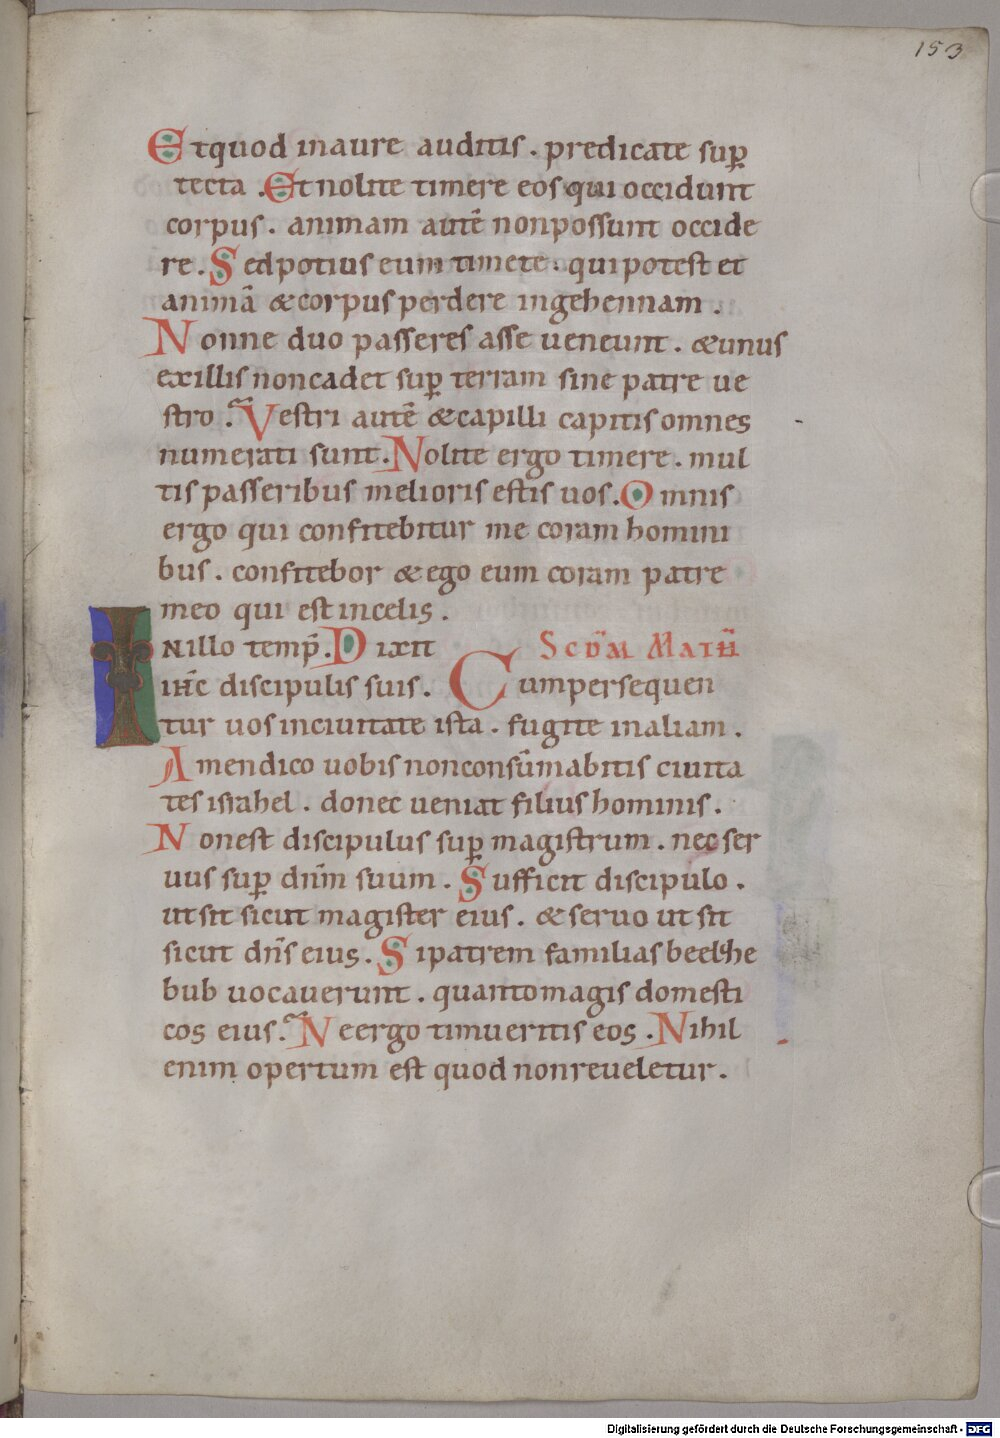 153
Et quod in aure auditis . predicate sup̄
tecta . Et nolite timere eos qui occidunt
corpus . animam autē non possunt occide
re . Sed potius eum timete . qui potest et
animā & corpus perdere in gehennam .
Nonne duo passeres asse ueneunt . & unus
ex illis non cadet sup̄ terram sine patre ue
stro . Vestri autē & capilli capitis omnes
numerati sunt . Nolite ergo timere . mul
tis passeribus melioris estis uos . Omnis
ergo qui confitebitur me coram homini
bus . confitebor & ego eum coram patre
meo qui est in celis .
In illo temp̄ . Dixit Scd̄m Math̄
ihc̄ discipulis suis . Cum persequen
tur uos in ciuitate ista . fugite in aliam .
Amen dico uobis non consūmabitis ciuita
tes israhel . donec ueniat filius hominis .
Non est discipulus sup̄ magistrum . nec ser
uus sup̄ dn̄m suum . Sufficit discipulo .
ut sit sicut magister eius . & seruo ut sit
sicut dn̄s eius . Si patrem familias beelzhe
bub uocauerunt . quanto magis domesti
cos eius . Ne ergo timueritis eos . Nihil
enim opertum est quod non reueletur .
Digitalisierung gefördert durch die Deutsche Forschungsgemeinschaft - DFG